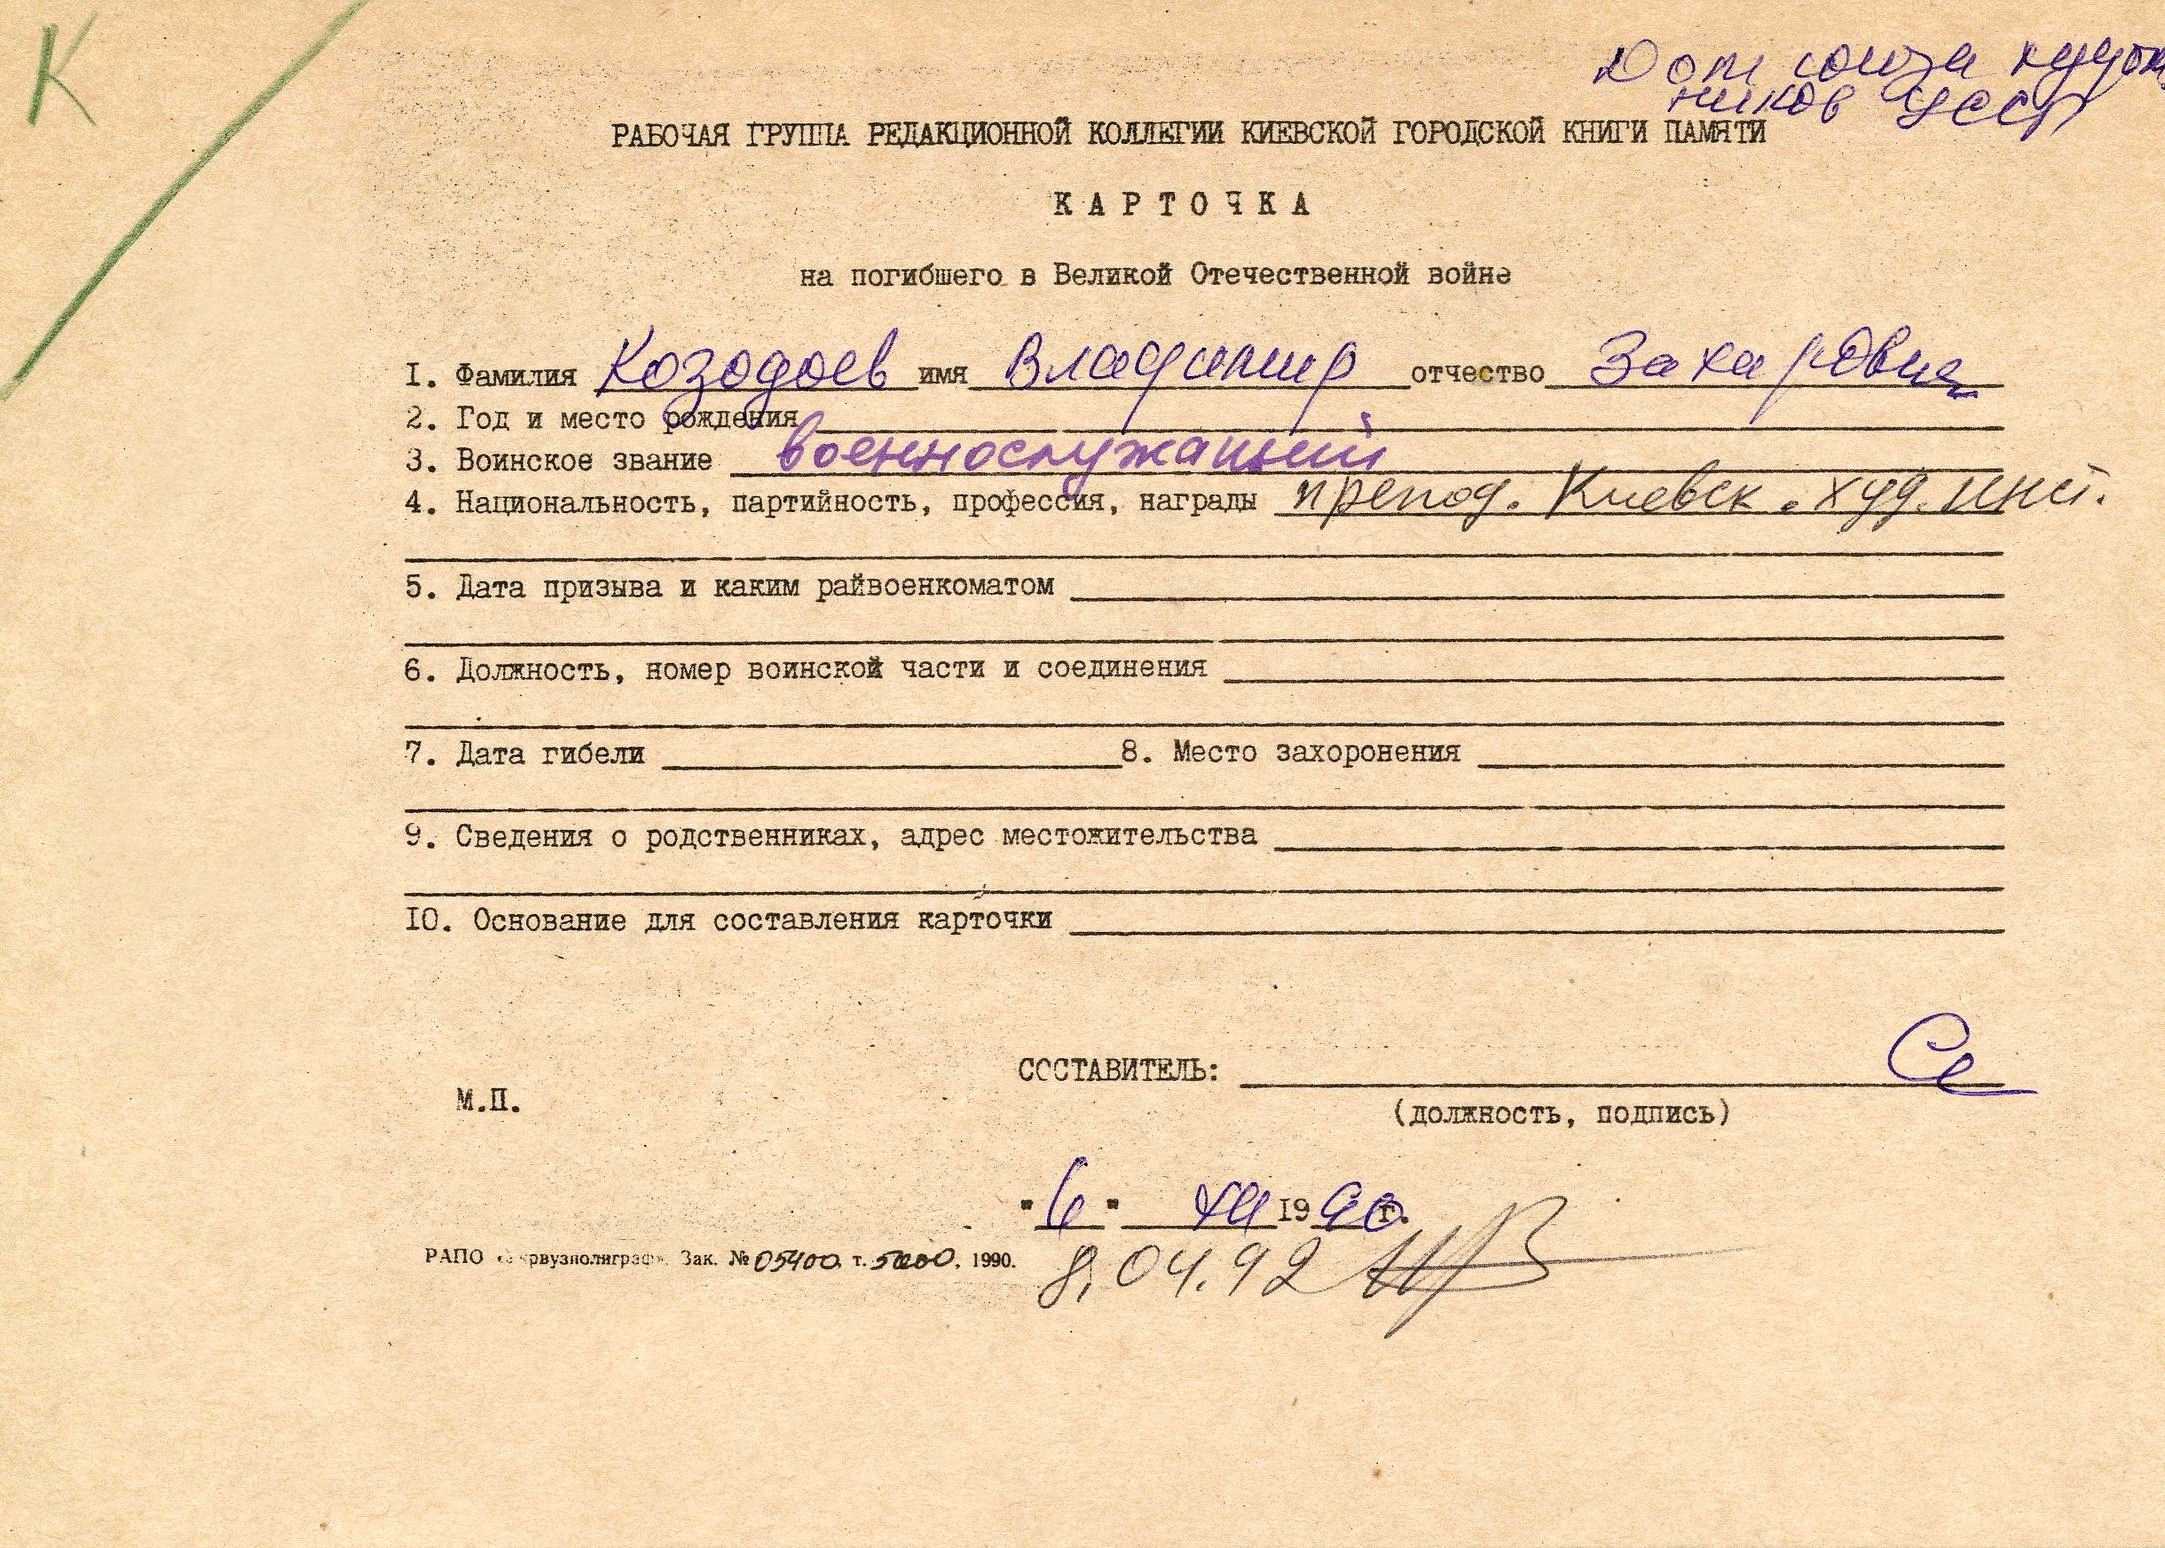 К
Дом союза худож
ников УССР
РАБОЧАЯ ГРУППА РЕДАКЦИОННОЙ КОЛЛЕГИИ КИЕВСКОЙ ГОРОДСКОЙ КНИГИ ПАМЯТИ
КАРТОЧКА
на погибшего в Великой Отечественной войне
I. Фамилия Козодоев имя Владимир отчество Захарович
2. Год и место рождения
3. Воинское звание военнослужащий
4. Национальность, партийность, профессия, награды препод. Киевск. худ. инст.
5. Дата призыва и каким райвоенкоматом
6. Должность, номер воинской части и соединения
7. Дата гибели 8. Место захоронения
9. Сведения о родственниках, адрес местожительства
IO. Основание для составления карточки
СОСТАВИТЕЛЬ:
М.П.
(должность, подпись)
"6" XII 1990г.
РАПО «Укрвузполиграф». Зак. № 05400. т. 5000. 1990.
8.04.92